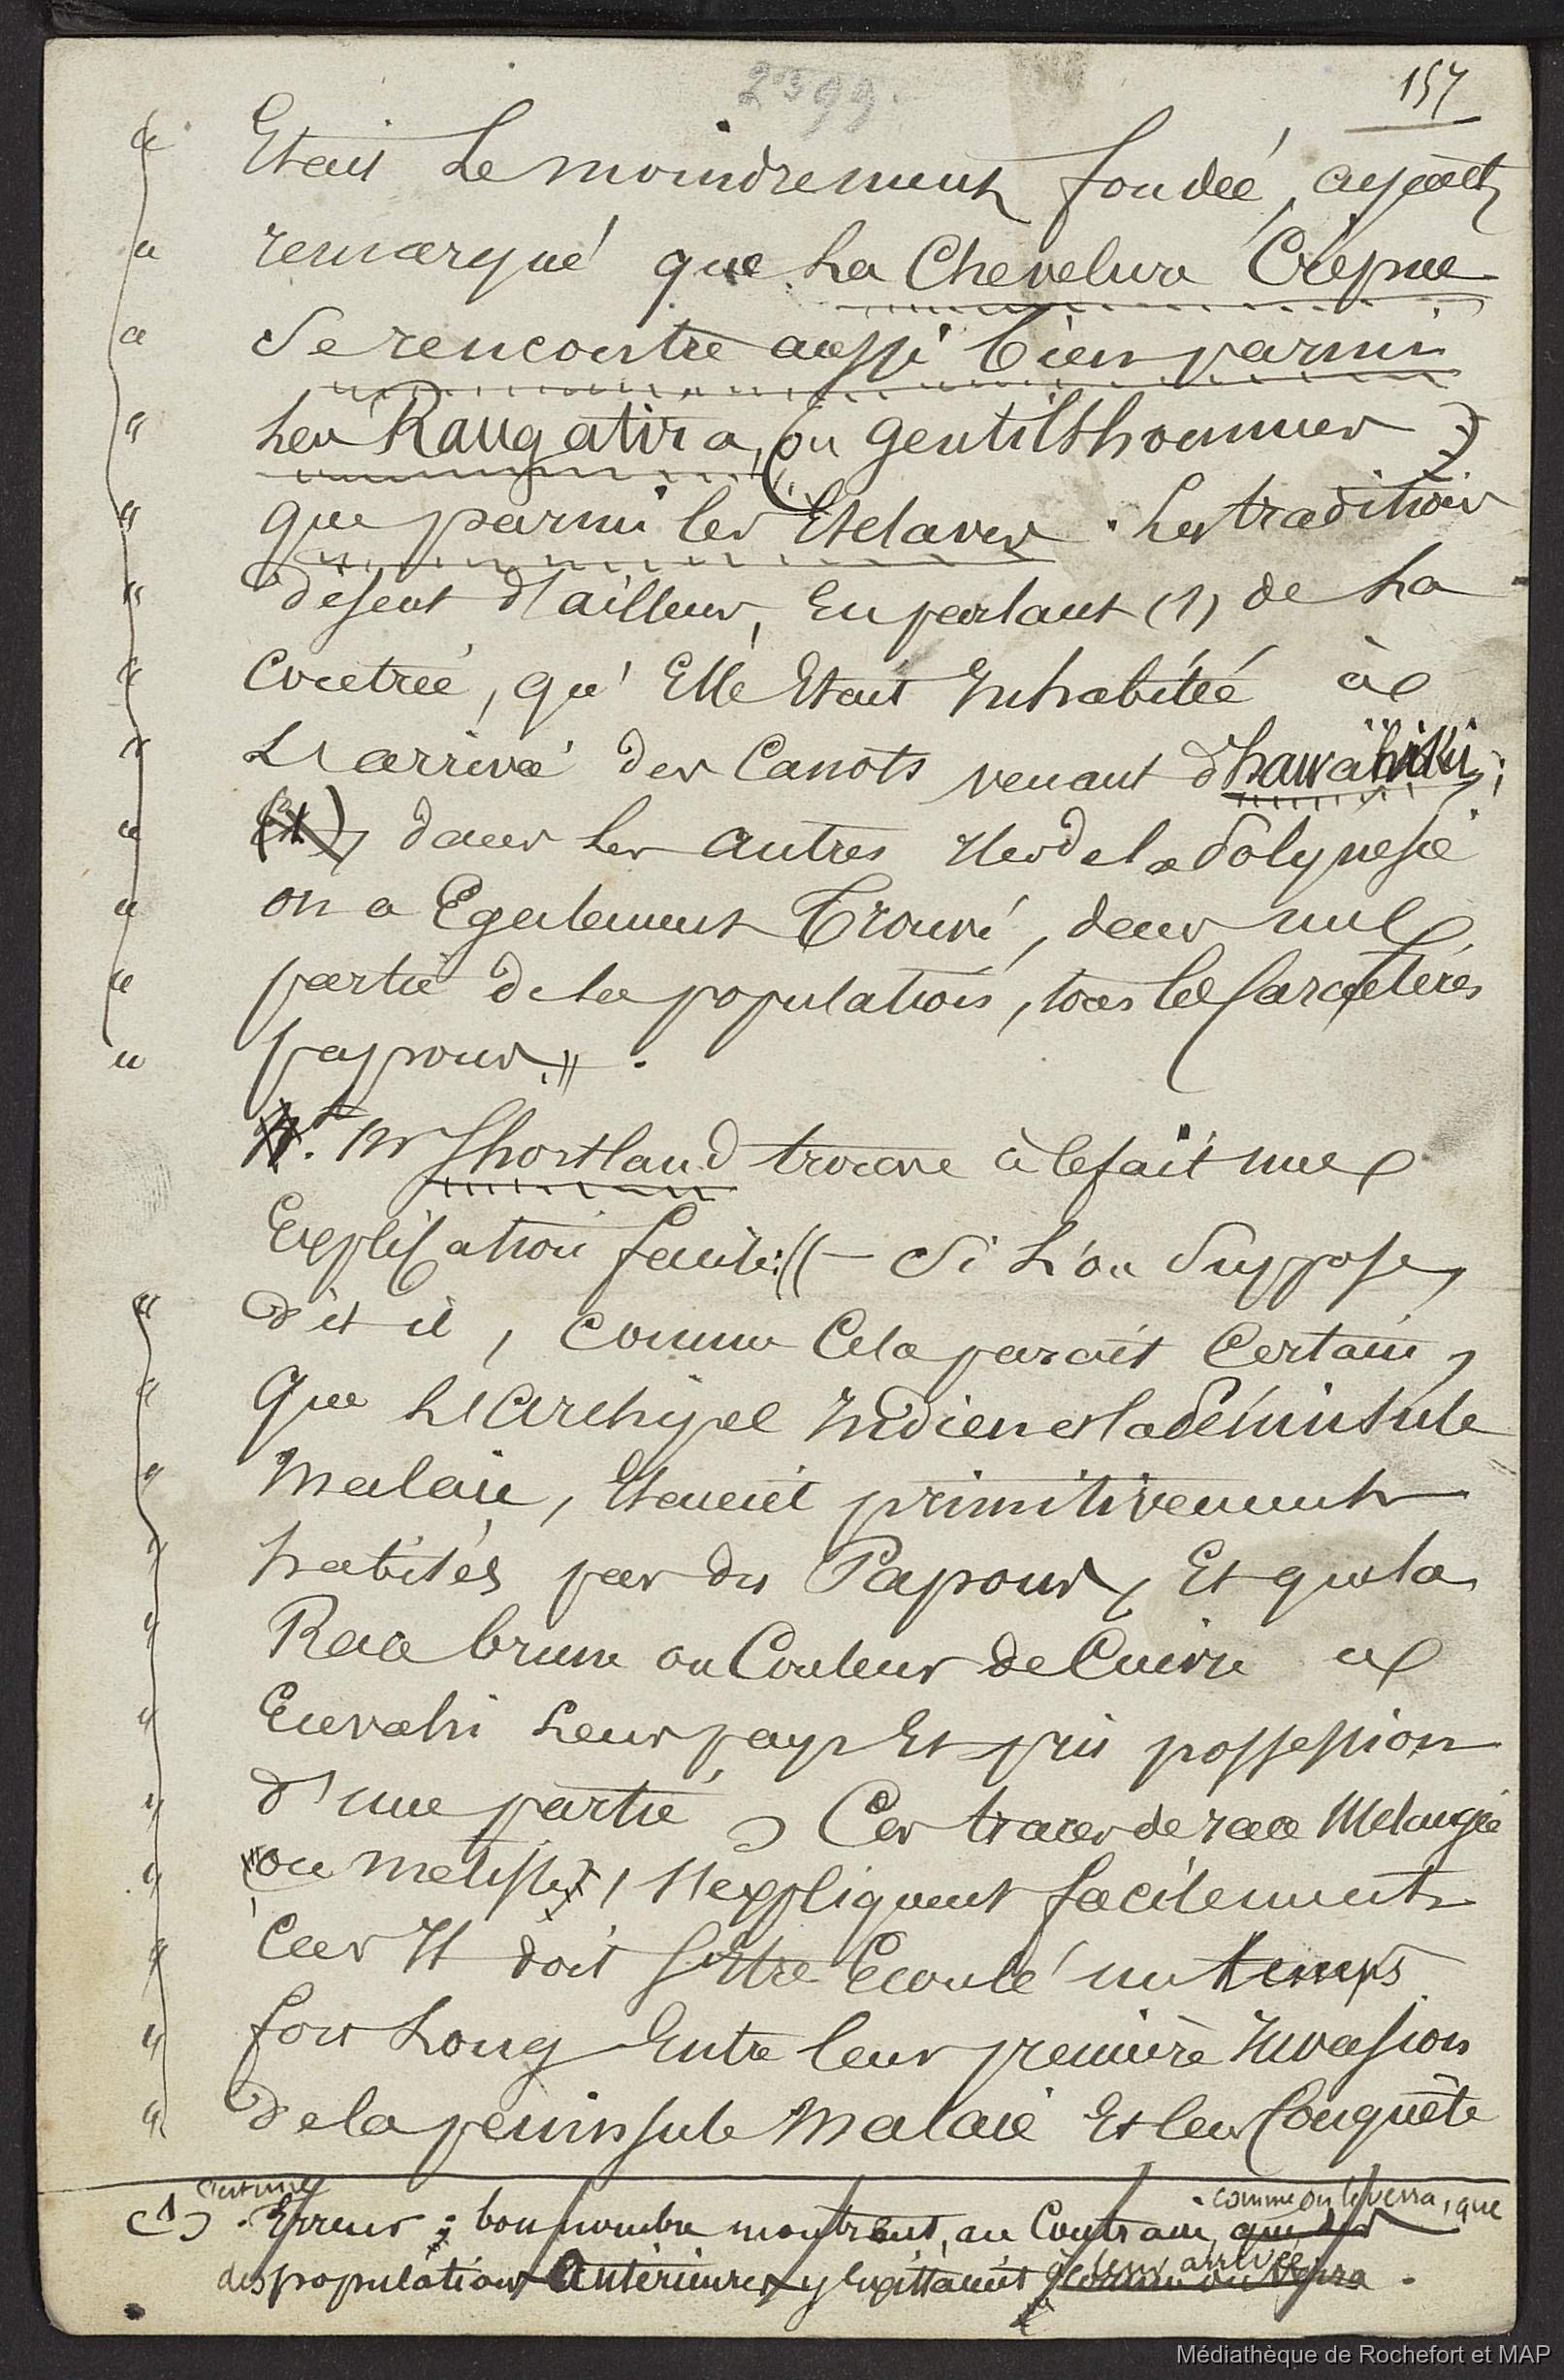 2399.
157
« Etait Le moindrement fondée, ayant
« remarqué que La Chevelure Crépue
« Se rencontre aussi bien parmi
« Les Rangatira, (ou gentilshommes)
« que parmi les Esclaves. Les traditions
« disent d'ailleurs, En parlant (1) de La
« Contrée, qu'Elle Etait Inhabitée à
« L'arrivée des Canots venant d'hawahiki;
« dans Les autres Iles de la Polynesie
« on a Egalement Trouvé, dans une
« partie de la population, tous les Caractères
« papous ».
Mr Shortland trouve à ce fait une
Explication facile: « — Si L'on Suppose,
« dit il, comme Cela parait Certain,
« que L'archipel Indien et la Péninsule
« Malaie, Etaient primitivement
« habités par des Papous, Et que la
« Race brune ou Couleur de Cuivre a
« Envahi Leur pays Et pris possession
« d'une partie, Ces traces de race Melangée
« ou metisse, S'expliquent facilement
« Car Il doit S'Etre Ecoulé un temps
« fort Long Entre leur première Invasion
« de la peninsule Malaie Et leur Conquête
(1) Erreur; bon nombre montrent, au Contraire, comme on le verra, que
des populations Antérieures y Existaient à leur arrivée.
Médiathèque de Rochefort et MAP